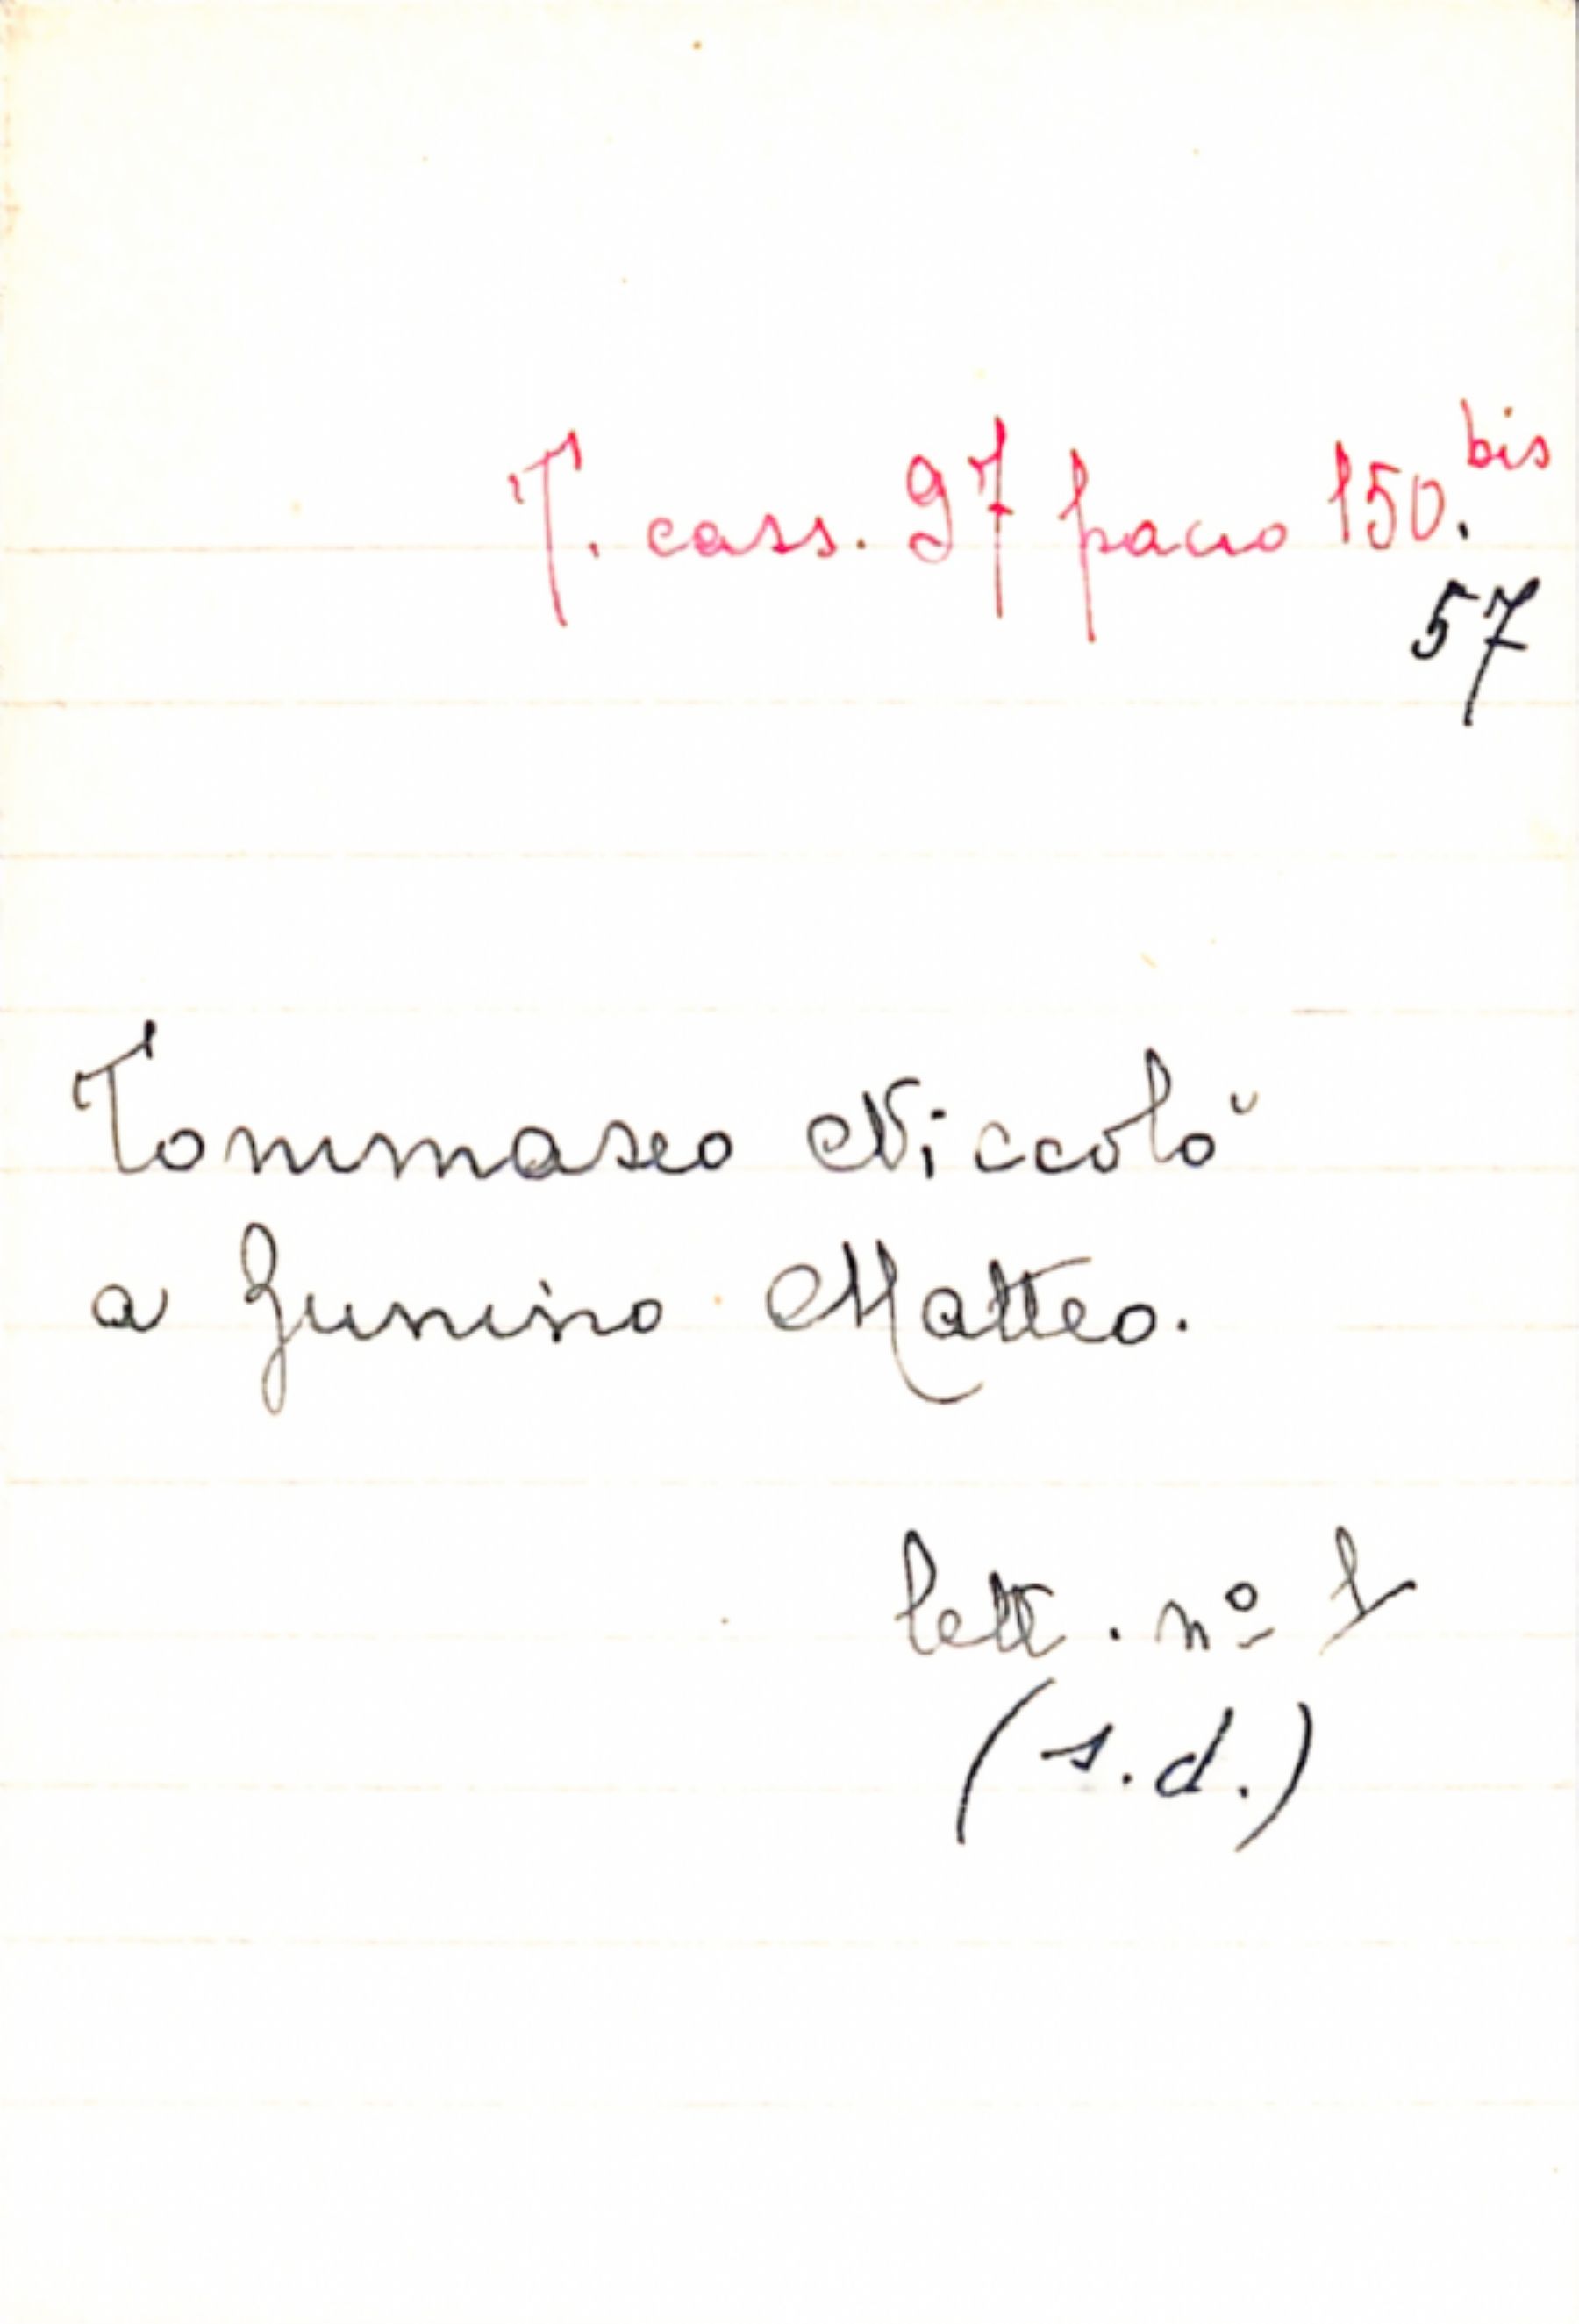 T. cass. 97 pacco 150. bis
57
Tommaseo Niccolò
a Zunino Matteo.
lett. nº 1
(s.d.)